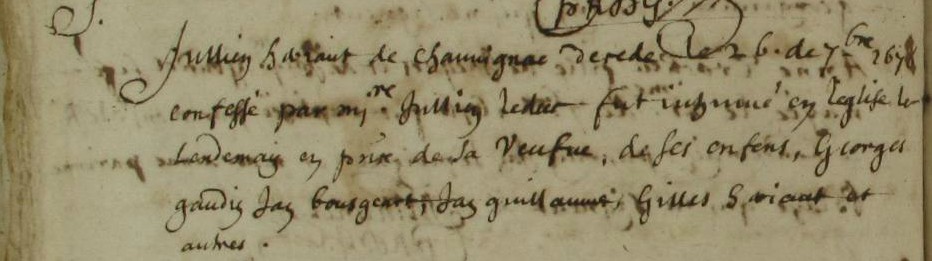 S.
Jullien Briant de Chauvignac decede le 26. de 7bre 1678
confessé par mire Jullien leduc fut inhumé en leglise le
Lendemain en prnce de Sa Veufue, de ses enfens, Georges
gaudin Jan bougeart, Jan guillaume, Gilles Briant et
autres.